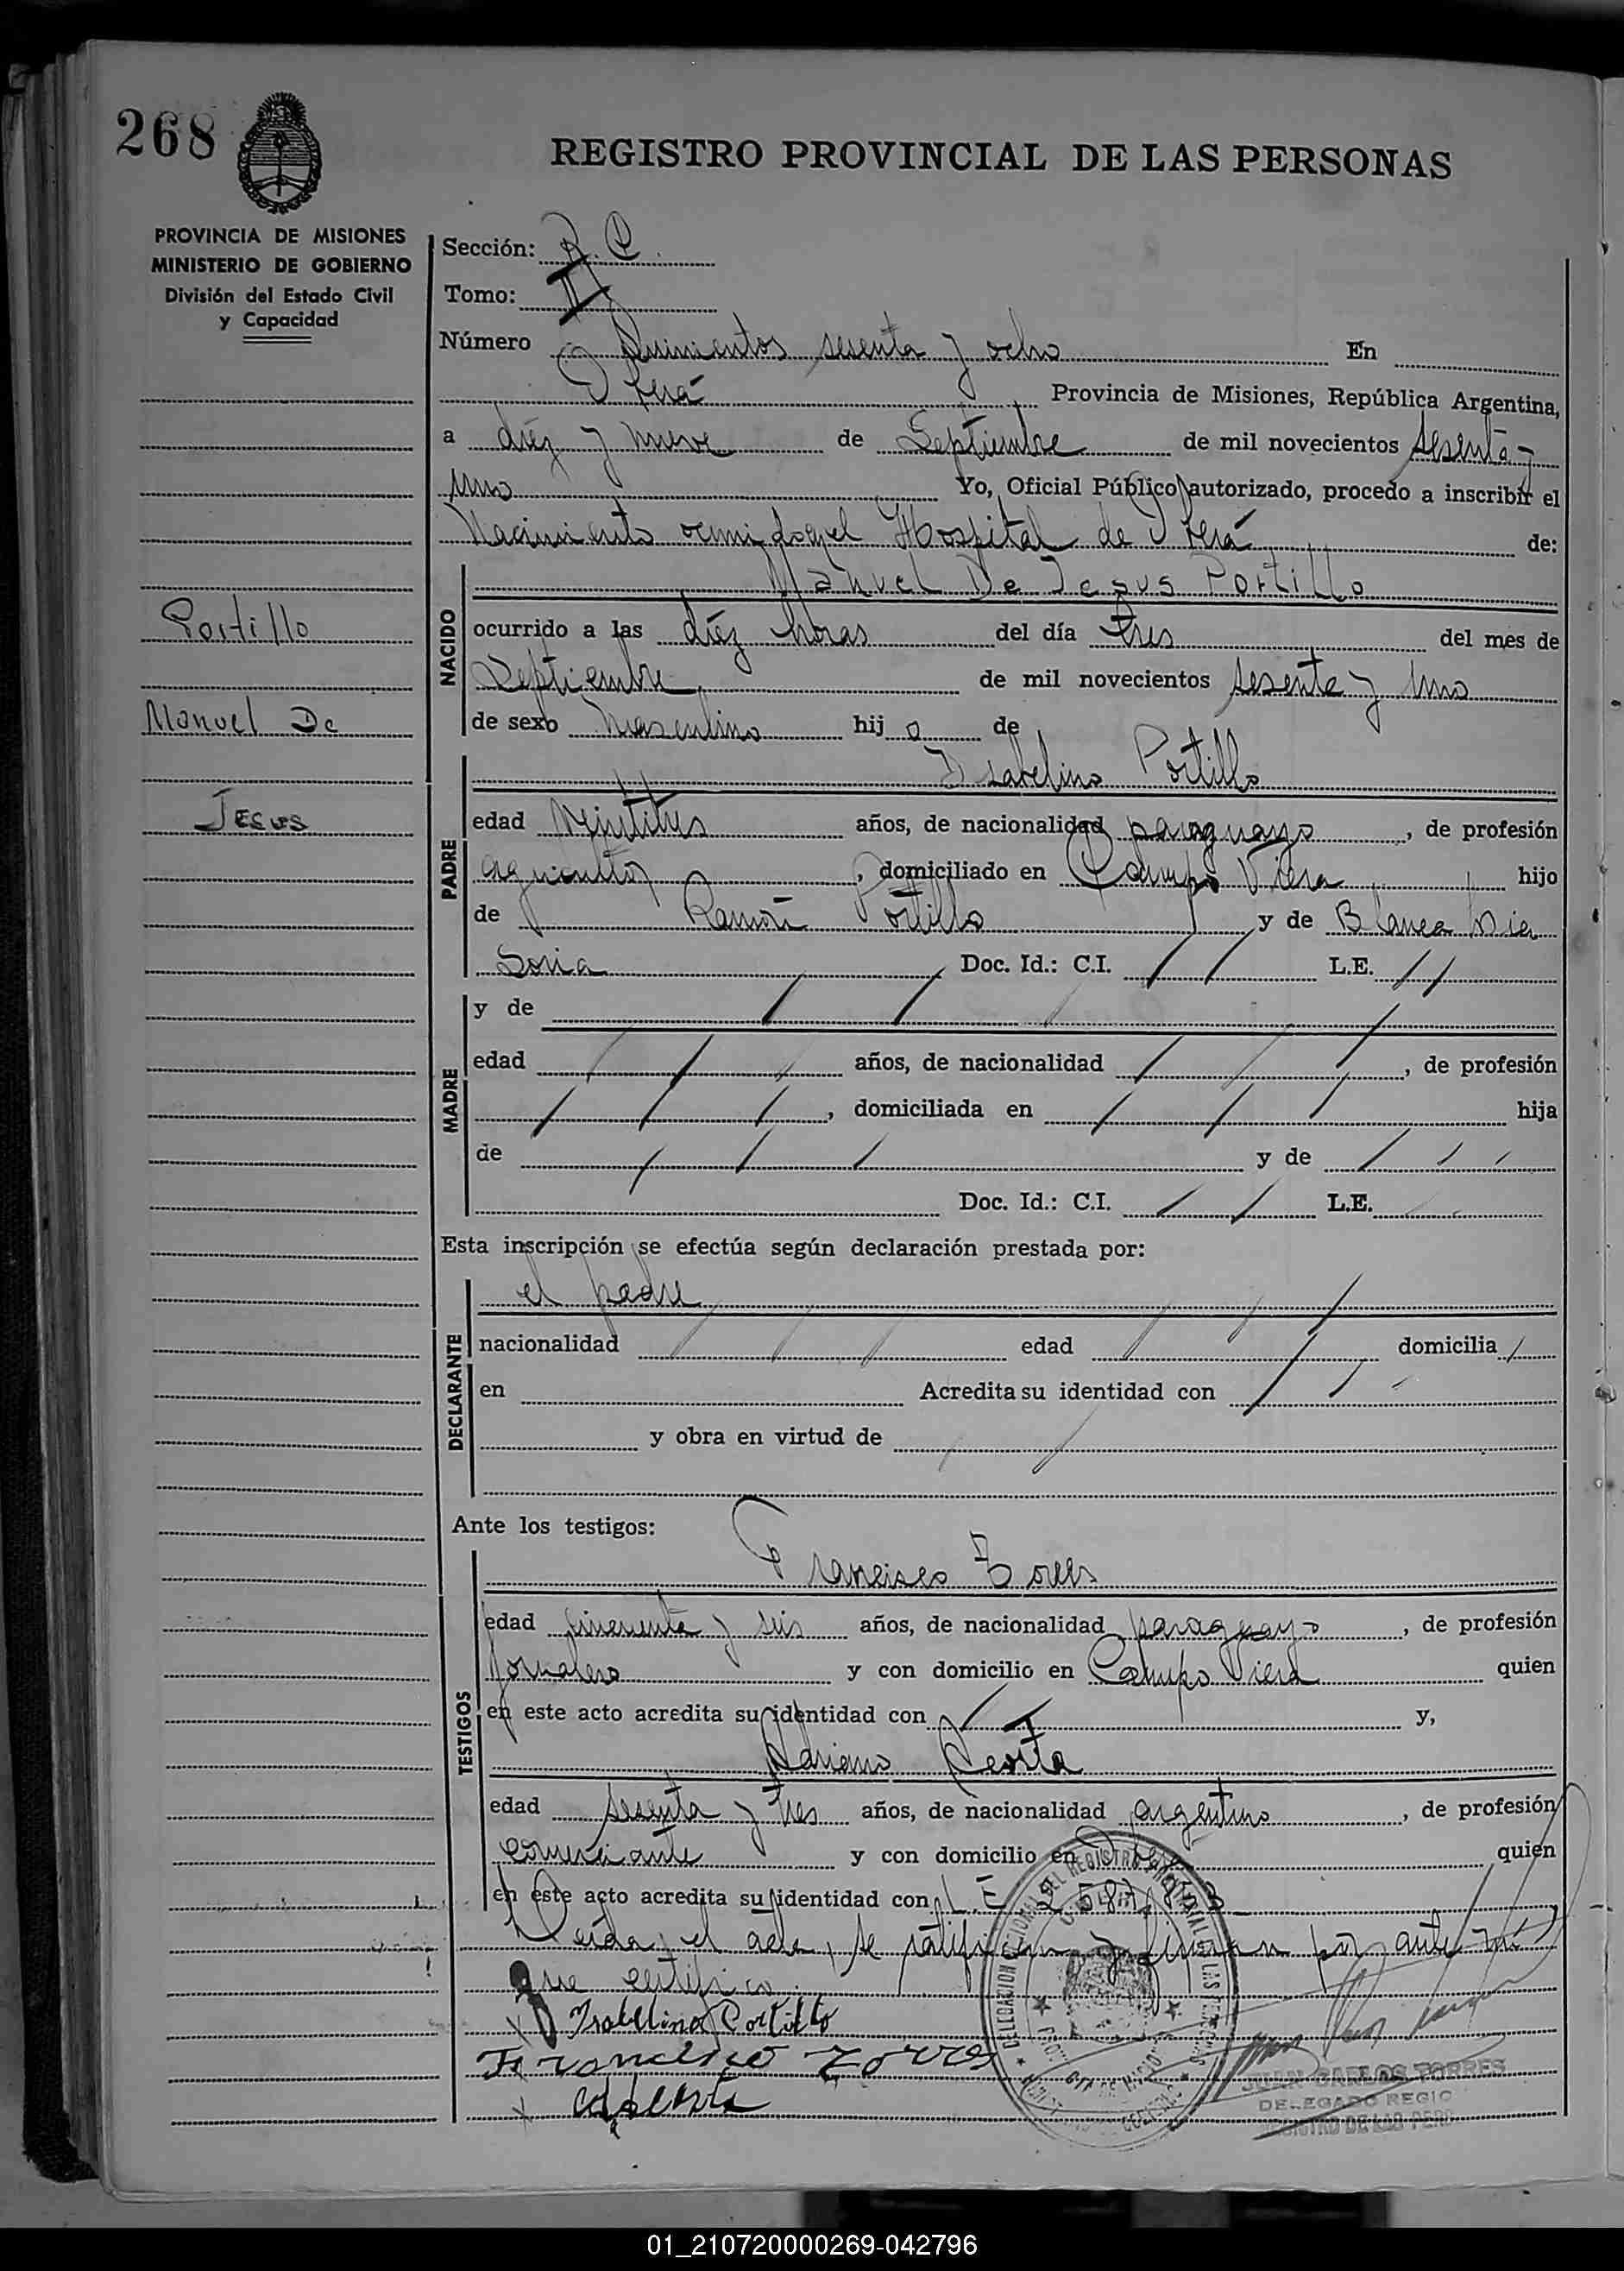 268
REGISTRO PROVINCIAL DE LAS PERSONAS
PROVINCIA DE MISIONES
MINISTERIO DE GOBIERNO
División del Estado Civil
y Capacidad
Portillo
Manuel De
Jesus
Sección: R. C.
Tomo: II
Número Quinientos sesenta y ocho En
Oberá Provincia de Misiones, República Argentina,
a diez y nueve de Septiembre de mil novecientos sesenta y
uno Yo, Oficial Público autorizado, procedo a inscribir el
Nacimiento Hospital de Oberá de:
NACIDO
Manuel De Jesus Portillo
ocurrido a las diez horas del día tres del mes de
Septiembre de mil novecientos sesenta y uno
de sexo masculino hij o de
PADRE
Isabelino Portillo
edad veintitres años, de nacionalidad paraguayo, de profesión
agricultor, domiciliado en Campo Viera hijo
de Ramón Portillo y de Blanca
Soria Doc. Id.: C.I. / / L.E. / /
MADRE
y de / / /
edad / / / años, de nacionalidad / / /, de profesión
/ / /, domiciliada en / / / hija
de / / / y de / / /
Doc. Id.: C.I. / / L.E.
Esta inscripción se efectúa según declaración prestada por:
DECLARANTE
el padre
nacionalidad / / / edad / / / domicilia /
en Acredita su identidad con / / /
y obra en virtud de / /
Ante los testigos:
TESTIGOS
Francisco Torres
edad cincuenta y seis años, de nacionalidad paraguayo, de profesión
jornalero y con domicilio en Campo Viera quien
en este acto acredita su identidad con y,
Adriano
edad sesenta y tres años, de nacionalidad argentino, de profesión
comerciante y con domicilio en quien
en este acto acredita su identidad con L.E.
Leída el acta, se ratifican y firman por ante mí
que certifico
Isabelino Portillo
Francisco Zorres
JUAN CARLOS TORRES
DELEGADO REGIO
REGISTRO DE LAS PERS
01_210720000269-042796